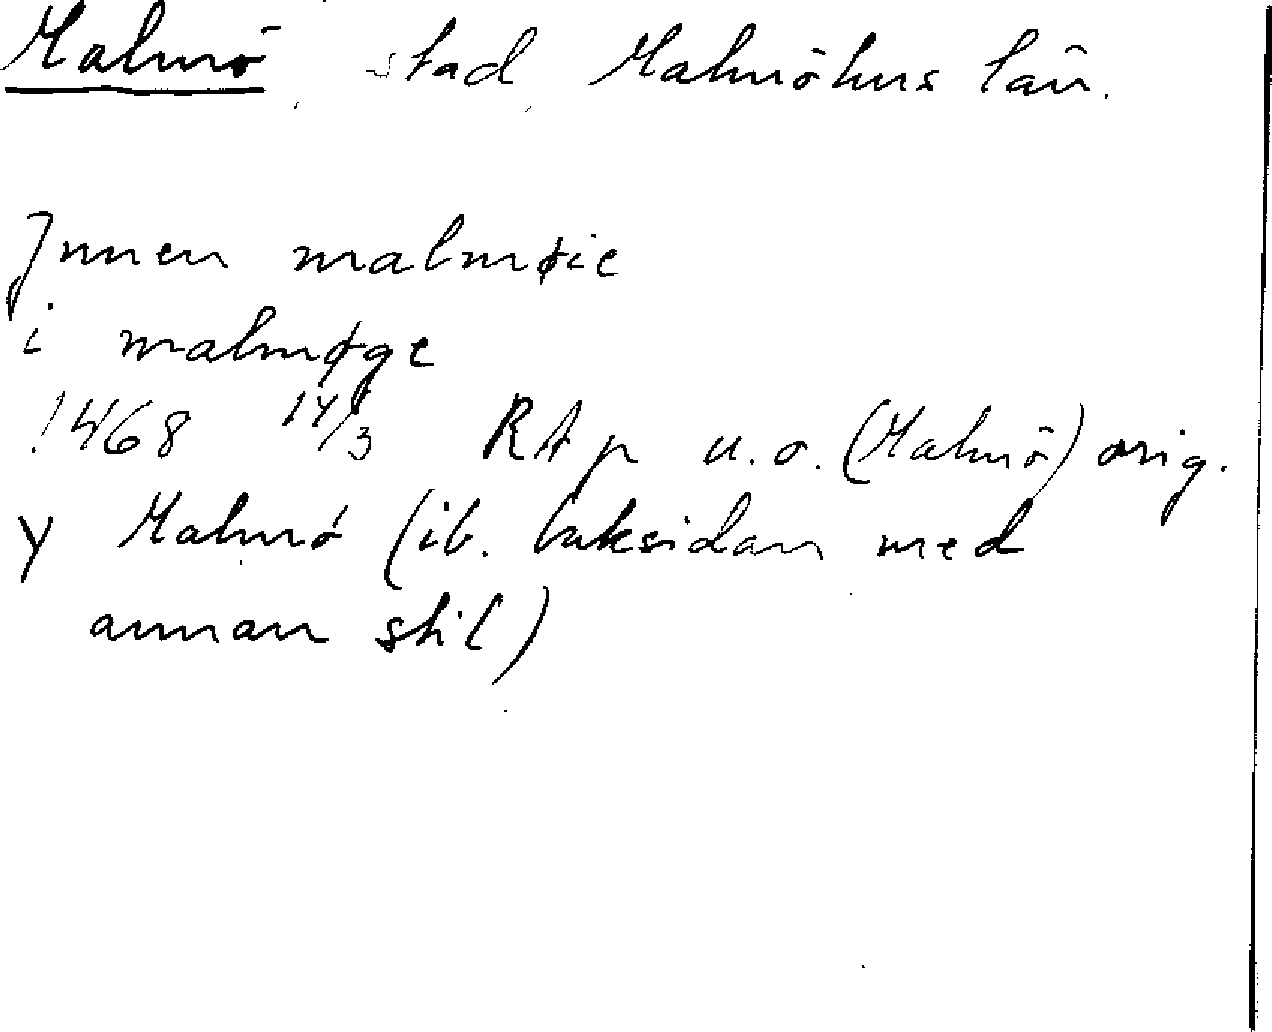 Malmö, stad, Malmöhus län.
Jnnen malmøie
i malmøge
1468 14/3 RA p u.o. (Malmö) orig.
y Malmö (ib. baksidan med
annan stil)